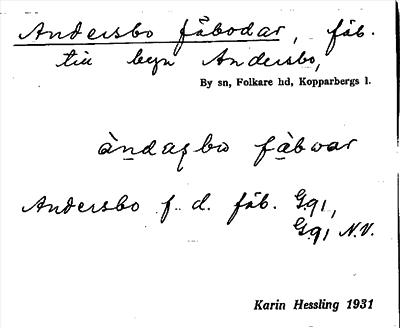 Andersbo fäbodar, fäb.
till byn Andersbo,
By sn, Folkare hd, Kopparbergs l.
àndasbo fä̀bωar
Andersbo f. d. fäb. G.91,
G.91 N.V.
Karin Hessling 1931